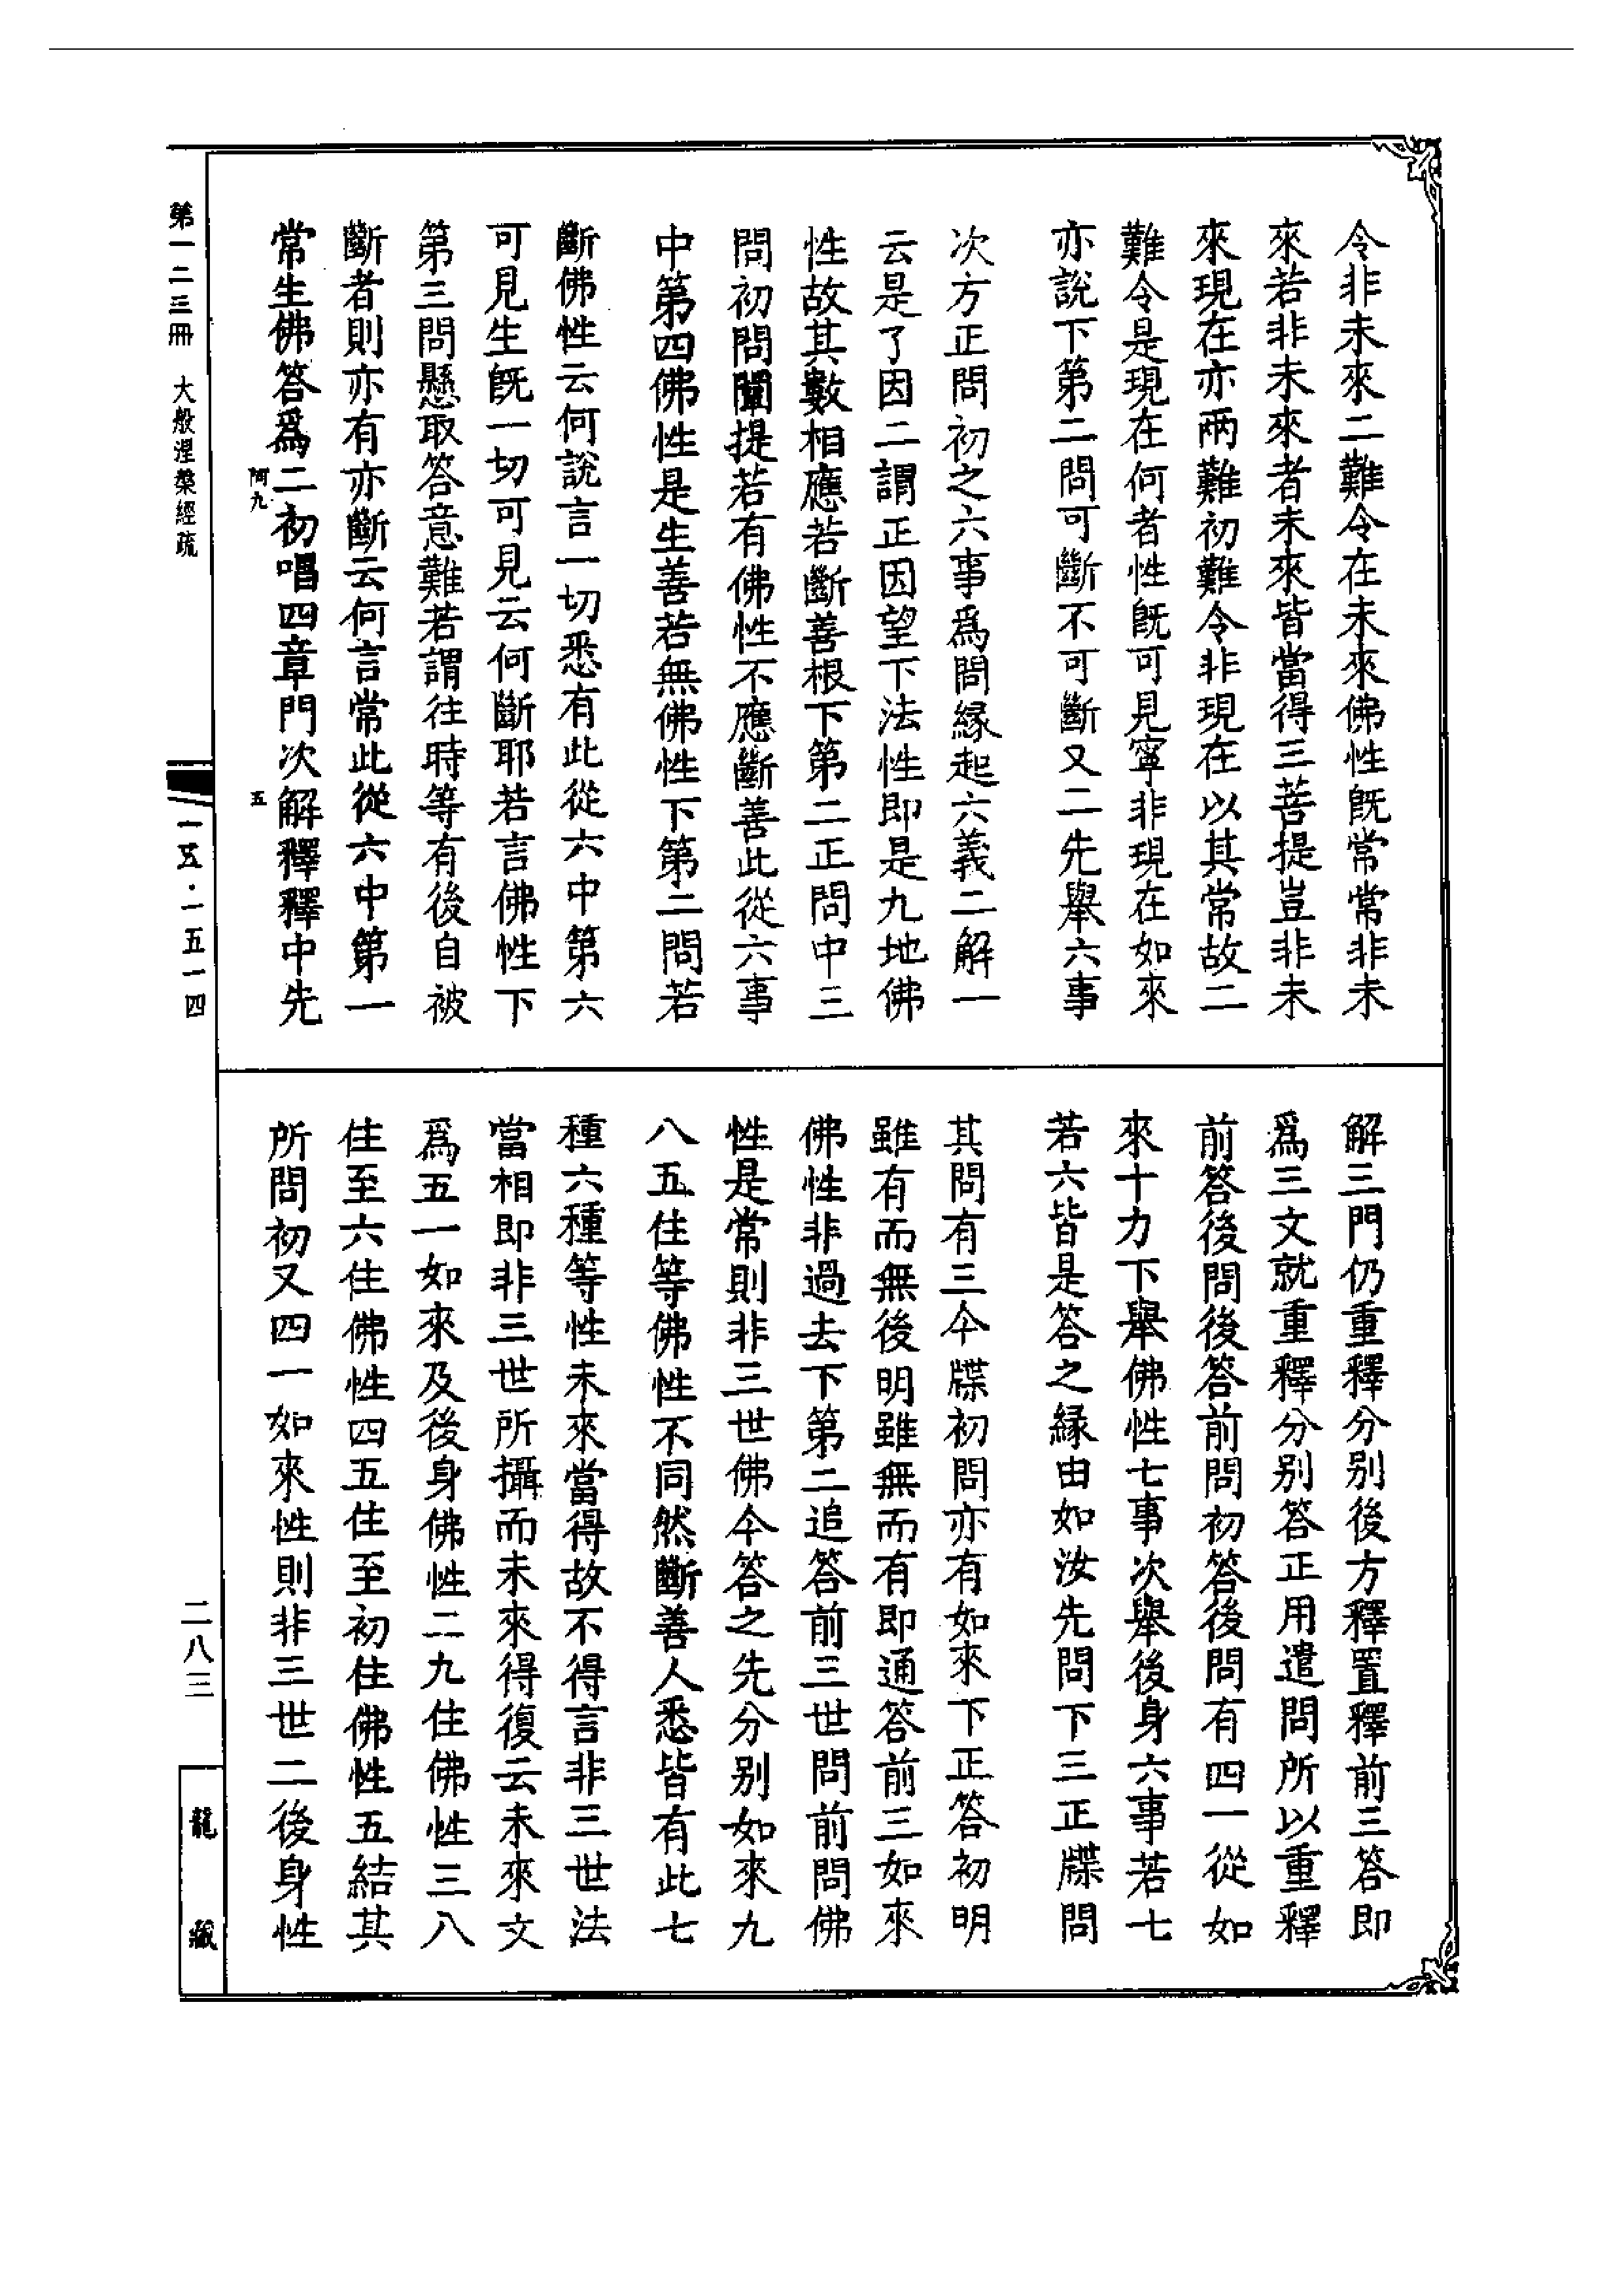 令非未來二難令在未來佛性旣常常非未
來若非未來者未來皆當得三菩提豈非未
來現在亦兩難初難令非現在以其常故二
難令是現在何者性旣可見寧非現在如來
亦說下第二問可斷不可斷又二先舉六事
次方正問初之六事爲問緣起六義二解一
云是了因二謂正因望下法性即是九地佛
性故其數相應若斷善根下第二正問中三
問初問闡提若有佛性不應斷善此從六事
中第四佛性是生善若無佛性下第二問若
斷佛性云何說言一切悉有此從六中第六
可見生旣一切可見云何斷耶若言佛性下
第三問懸取答意難若謂往時等有後自被
斷者則亦有亦斷云何言常此從六中第一
常生佛答爲二初唱四章門次解釋釋中先
解三門仍重釋分別後方釋置釋前三答即
爲三文就重釋分別答正用遣問所以重釋
前答後問後答前問初答後問有四一從如
來十力下舉佛性七事次舉後身六事若七
若六皆是答之緣由如汝先問下三正牒問
其問有三今牒初問亦有如來下正答初明
雖有而無後明雖無而有即通答前三如來
佛性非過去下第二追答前三世問前問佛
性是常則非三世佛今答之先分別如來九
八五住等佛性不同然斷善人悉皆有此七
種六種等性未來當得故不得言非三世法
當相即非三世所攝而未來得復云未來文
爲五一如來及後身佛性二九住佛性三八
住至六住佛性四五住至初住佛性五結其
所問初又四一如來性則非三世二後身性
阿九
五
第一二三冊 大般涅槃經疏
一五·一五一四
二八三
龍藏